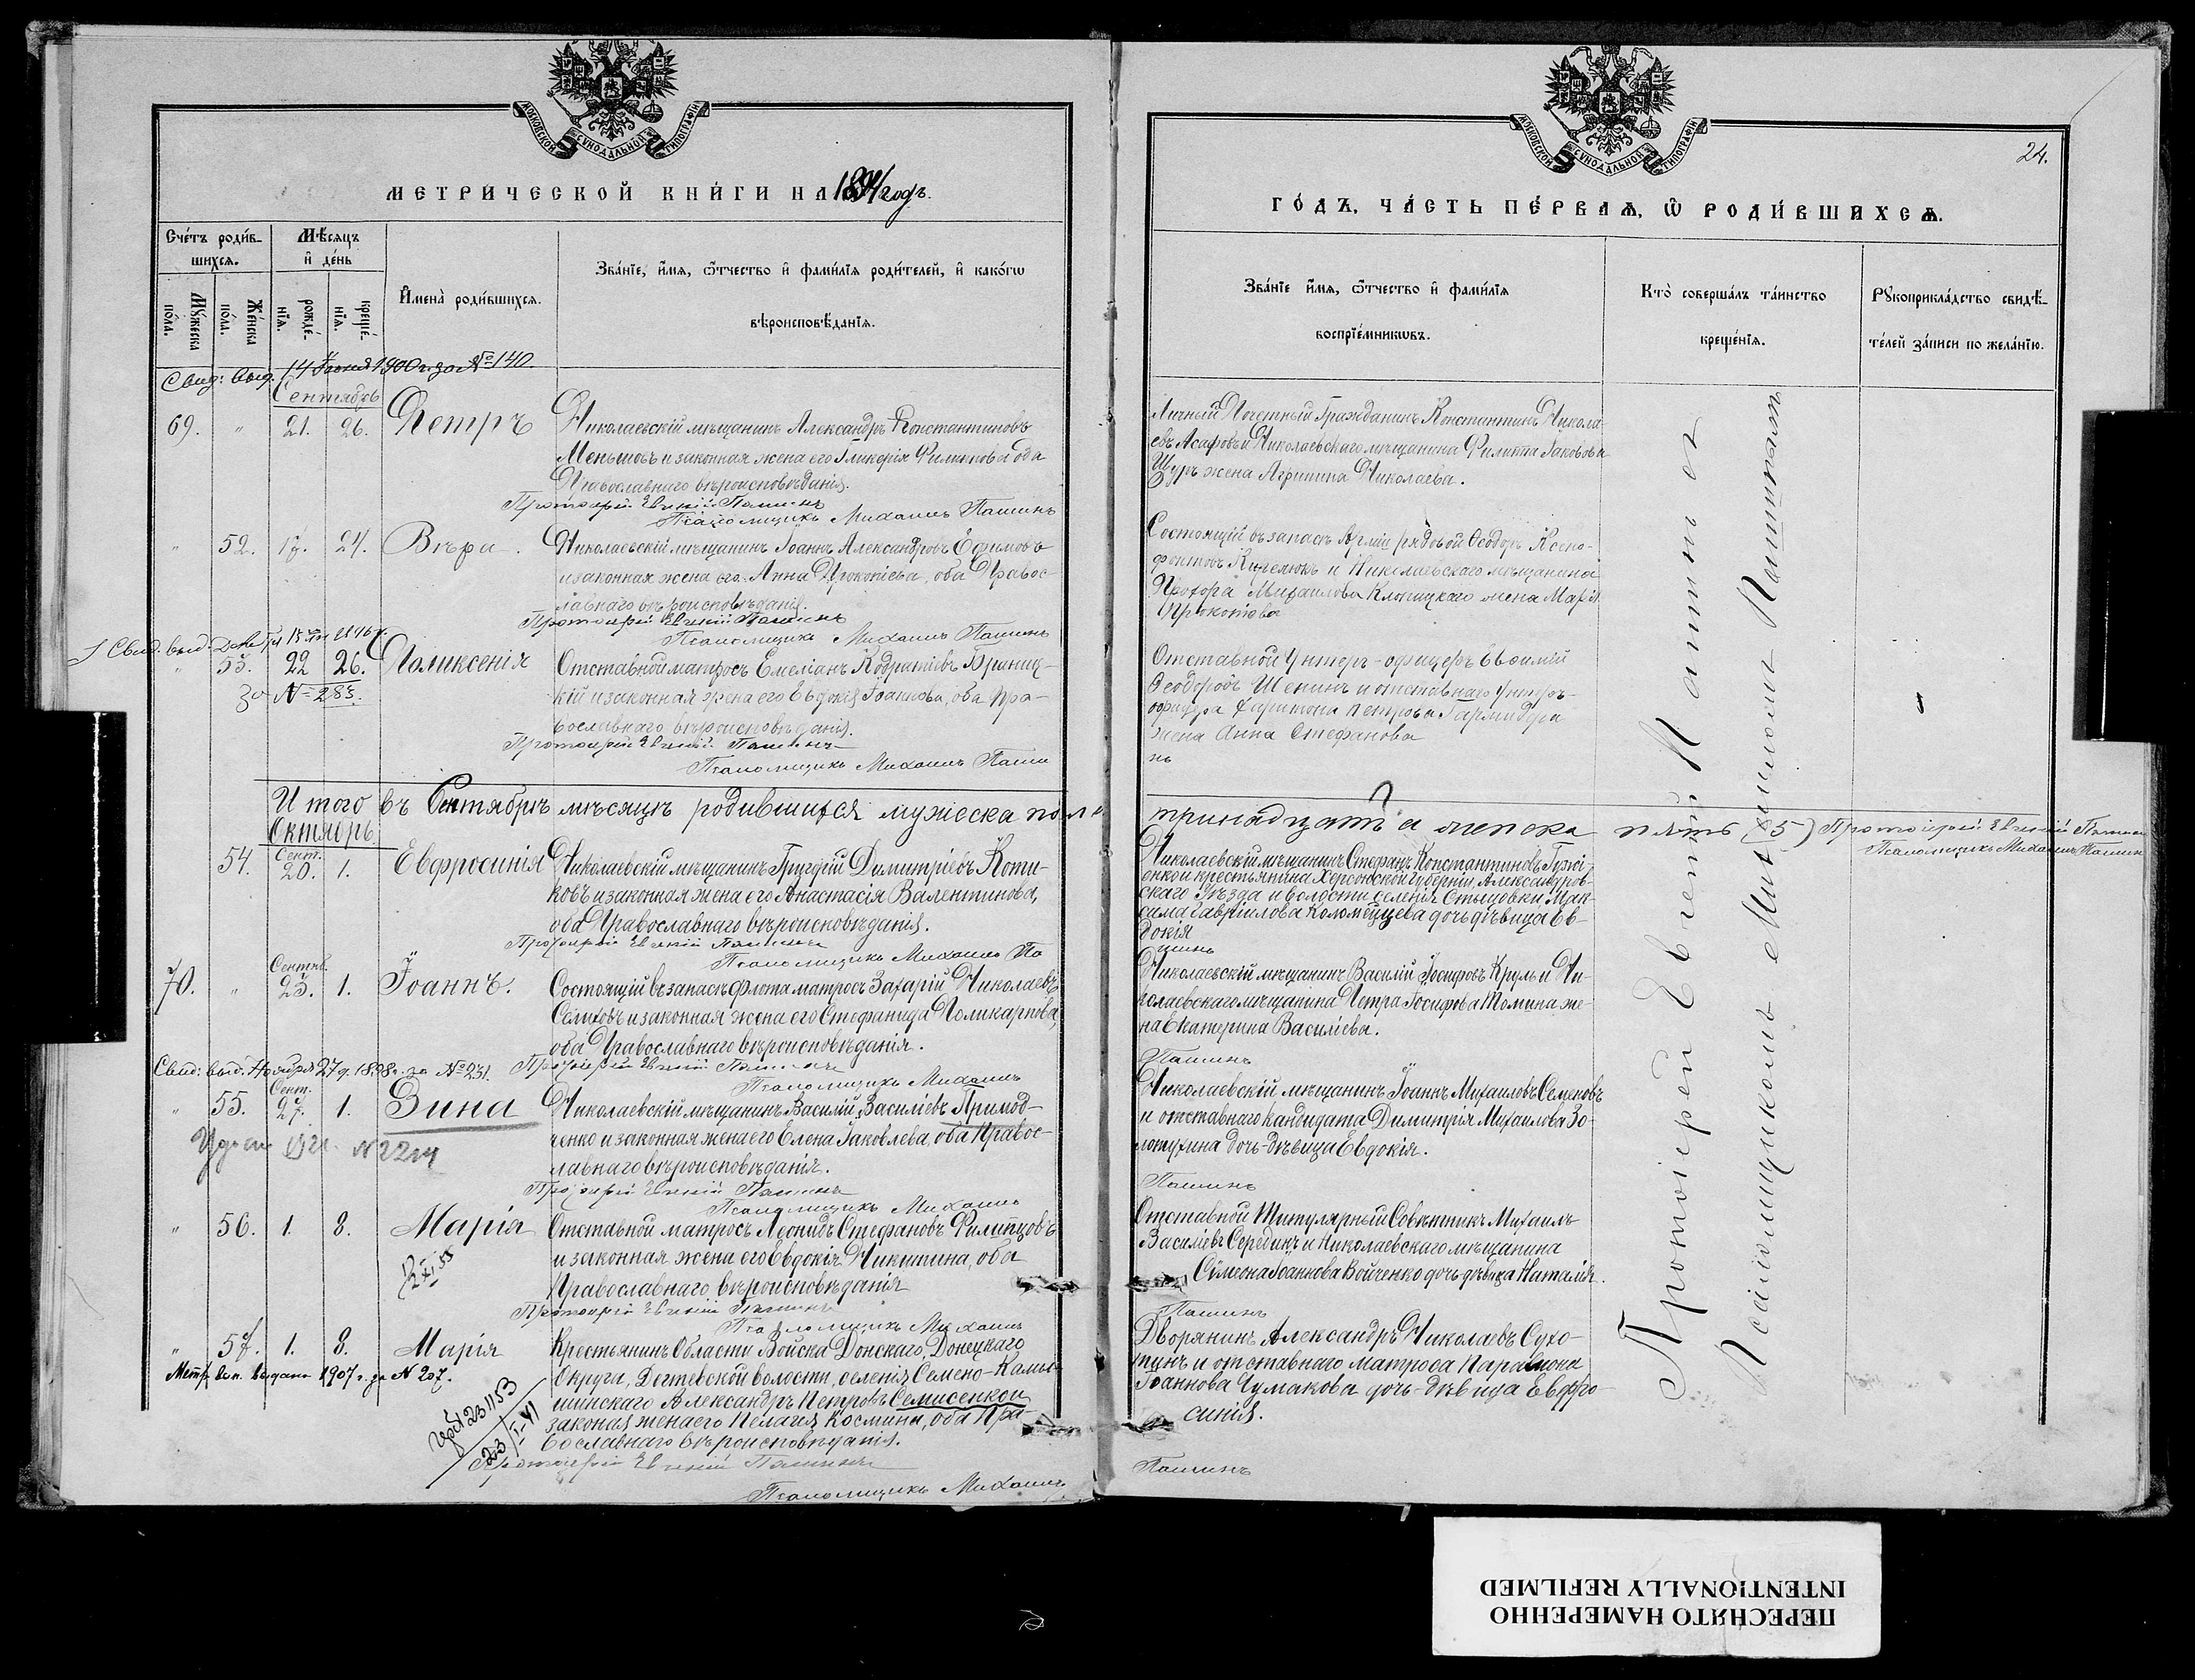 МОСКОВСКОЙ СѴНОДАЛЬНОЙ ТИПОГРАФІИ
МЕТРИЧЕСКОЙ КНИ́ГИ НА 1894 годъ.
Сче́тъ роди́в-
шихсѧ.
Мѣ́сяцъ
и де́нь
Мꙋжеска
пола.
Же́нска
по́ла.
рожде́-
нїѧ.
креще́-
нїѧ.
Имена̀ роди́вшихсѧ.
Зва́нїе, и́мѧ, ѻ҆́тчество и фами́лїѧ роди́телей, и како́гѡ
вѣроисповѣ́данїѧ.
Свид: выд. 14 Іюня 1900 г. за № 140.
Сентябрь
69. " 21. 26. Петръ Николаевскій мѣщанинъ Александръ Константиновъ
Меньшовъ и законная жена его Гликерія Филиппова оба
Православнаго вѣроисповѣданія.
Протоіерей Евгеній Пашинъ
Псаломщикъ Михаилъ Пашинъ
" 52. 17. 24. Вѣра. Николаевскій мѣщанинъ Іоаннъ Александровъ Ефимовъ
и законная жена его Анна Прокопіева, оба Правос-
лавнаго вѣроисповѣданія.
Протоіерей Евгеній Пашинъ
Псаломщикъ Михаилъ Пашинъ
Свид. выд.
" 53. 22 26. Поликсенія Отставной матросъ Емеліанъ Кодратіевъ Браниц-
за № 283.
кій и законная жена его Евдокія Іоаннова, оба Пра-
вославнаго вѣроисповѣданія.
Протоіерей Евгеній Пашинъ
Псаломщикъ Михаилъ Паши
Итого въ Сентябрѣ мѣсяцѣ родившихся мужеска пола
Октябрь.
54. Сент. 20. 1. Евфросинія Николаевскій мѣщанинъ Григорій Димитріевъ Коти-
ковъ и законная жена его Анастасія Валентинова,
оба Православнаго вѣроисповѣданія.
Протоіерей Евгеній Пашинъ
Псаломщикъ Михаилъ Па
70. " Сентяб. 23. 1. Іоаннъ. Состоящій въ запасѣ флота матросъ Захарій Николаевъ
Селиховъ и законная жена его Стефанида Поликарпова,
оба Православнаго вѣроисповѣданія.
Свид: выд. Ноября 27 д. 1898 г. за № 231.
Протоіерей Евгеній Пашинъ
Псаломщикъ Михаилъ
" 55. Сент. 27. 1. Зина Николаевскій мѣщанинъ Василій Василіевъ Примод-
ченко и законная жена его Елена Іаковлева, оба Правос-
N 2214
лавнаго вѣроисповѣданія.
Протоіерей Евгеній Пашинъ
Псаломщикъ Михаилъ
" 56. 1. 8. Марія Отставной матросъ Леонидъ Стефановъ Филипцовъ
и законная жена его Евдокія Никитина, оба
Православнаго вѣроисповѣданія
Протоіерей Евгеній Пашинъ
Псаломщикъ Михаилъ
" 57. 1. 8. Марія Крестьянинъ Области Войска Донскаго, Донецкаго
Метр. вып. выдана 1907 г. за N 207.
Округа, Дегтевской волости, селенія Семено-Камы-
шинскаго Александръ Петровъ Семисенкои
законая жена его Пелагія Космина, оба Пра-
вославнаго вѣроисповѣданія.
Протоіерей Евгеній Пашинъ
Псаломщикъ Михаилъ
МОСКОВСКОЙ СѴНОДАЛЬНОЙ ТИПОГРАФІИ
24.
ГО́ДЪ, ЧА́СТЬ ПЕ́РВАѦ, Ѽ РОДИ́ВШИХСѦ.
Зва́нїе и́мѧ, ѻ҆́тчество и фами́лїѧ
воспрїе́мникѡвъ.
Кто̀ соверша́лъ та́инство
креще́нїѧ.
Рꙋкоприкла́дство свидѣ́-
те́лей за́писи по жела́нїю.
Личный Почетный Гражданинъ Константинъ Никола-
евъ Асафовъ и Николаевскаго мѣщанина Филиппа Іаковова
Щуръ жена Агрипина Николаева.
Состоящій въ запасѣ Арміи рядовой Ѳеодоръ Ксено-
фонтовъ Кирелюкъ и Николаевскаго мѣщанина
Прохора Михаилова Клопицкаго жена Марія
Прокопіева
Отставной Унтеръ-офицеръ Евѳимій
Ѳеодоровъ Шенинъ и отставнаго Унтеръ-
офицера Харитона Петрова Гармидера
жена Анна Стефанова
нъ
тринадцать а женска пять (5) Протоіерей Евгеній Пашинъ
Псаломщикъ Михаилъ Пашинъ
Николаевскій мѣщанинъ Стефанъ Константиновъ
и крестьянина Херсонской губерніи, Александров-
скаго Уѣзда и волости селенія Стецовки Мак-
сима Гавріилова Коломейцева дочь дѣвица Ев-
докія
шинъ
Николаевскій мѣщанинъ Василій Іосифовъ Круль и Ни-
колаевскаго мѣщанина Петра Іосифова Томина же-
на Екатерина Василіева.
Пашинъ
Николаевскій мѣщанинъ Іоаннъ Михаиловъ Семеновъ
и отставнаго кандидата Димитрія Михаилова Зо-
лотухина дочь-дѣвица Евдокія.
Пашинъ
Отставной Титулярный Совѣтникъ Михаилъ
Василіевъ Серединъ и Николаевскаго мѣщанина
Сѵмеона Іоаннова Войченко дочь дѣвица Наталія.
Пашинъ
Дворянинъ Александръ Николаевъ Сухо-
тинъ и отставнаго матроса Парамона
Іоаннова Чумакова дочь-дѣвица Евфро-
синія.
Пашинъ
Протоіерей Евгеній Пашинъ съ
Псаломщикомъ Михаиломъ Пашинымъ
ПЕРЕСНЯТО НАМЕРЕННО
INTENTIONALLY REFILMED